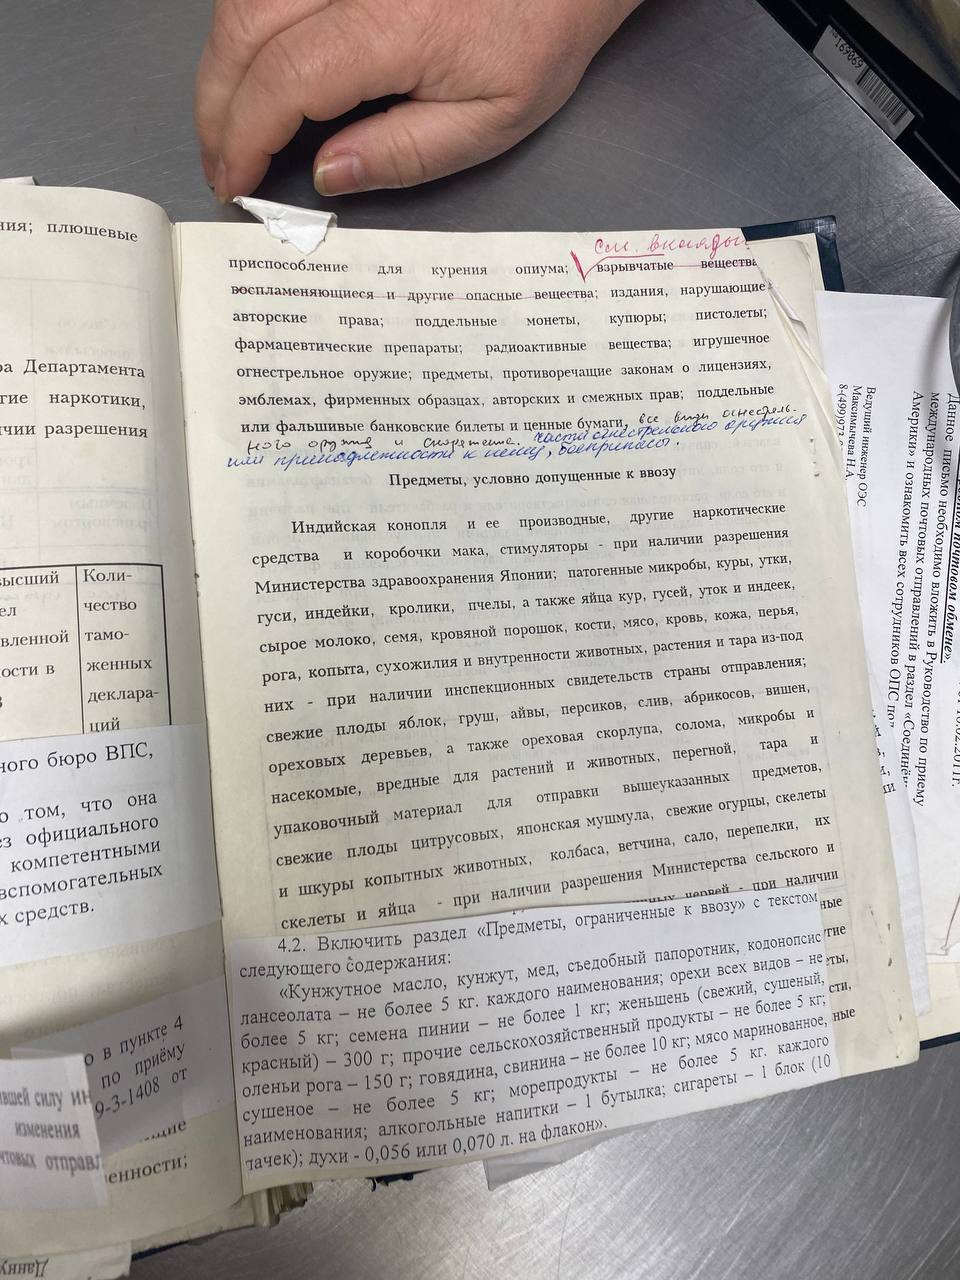 ния; плюшевые
Департамента
гие наркотики,
чии разрешения
высший
Коли-
чество
вленной
тамо-
ности в
женных
деклара-
ций
ного бюро ВПС,
о том, что она
ез официального
компетентными
вспомогательных
х средств.
о в пункте 4
по приёму
9-3-1408 от
вшей силу
изменения
чтовых отправл
енности;
См. вклады
приспособление для курения опиума; взрывчатые вещества
воспламеняющиеся и другие опасные вещества; издания, нарушающие
авторские права; поддельные монеты, купюры; пистолеты;
фармацевтические препараты; радиоактивные вещества; игрушечное
огнестрельное оружие; предметы, противоречащие законам о лицензиях,
эмблемах, фирменных образцах, авторских и смежных прав; поддельные
или фальшивые банковские билеты и ценные бумаги, все виды огнестрель-
ного оружия и снаряжения. части огнестрельного оружия
или принадлежности к нему, боеприпасы.
Предметы, условно допущенные к ввозу
Индийская конопля и ее производные, другие наркотические
средства и коробочки мака, стимуляторы - при наличии разрешения
Министерства здравоохранения Японии; патогенные микробы, куры, утки,
гуси, индейки, кролики, пчелы, а также яйца кур, гусей, уток и индеек,
сырое молоко, семя, кровяной порошок, кости, мясо, кровь, кожа, перья,
рога, копыта, сухожилия и внутренности животных, растения и тара из-под
них - при наличии инспекционных свидетельств страны отправления;
свежие плоды яблок, груш, айвы, персиков, слив, абрикосов, вишен,
ореховых деревьев, а также ореховая скорлупа, солома, микробы и
насекомые, вредные для растений и животных, перегной, тара и
упаковочный материал для отправки вышеуказанных предметов,
свежие плоды цитрусовых, японская мушмула, свежие огурцы, скелеты
и шкуры копытных животных, колбаса, ветчина, сало, перепелки, их
скелеты и яйца - при наличии разрешения Министерства сельского и
червей - при наличии
4.2. Включить раздел «Предметы, ограниченные к ввозу» с текстом
следующего содержания:
«Кунжутное масло, кунжут, мед, съедобный папоротник, кодонопсис
лансеолата – не более 5 кг. каждого наименования; орехи всех видов – не
более 5 кг; семена пинии – не более 1 кг; женьшень (свежий, сушеный,
красный) – 300 г; прочие сельскохозяйственный продукты – не более 5 кг;
оленьи рога – 150 г; говядина, свинина – не более 10 кг; мясо маринованное,
сушеное – не более 5 кг; морепродукты – не более 5 кг. каждого
наименования; алкогольные напитки – 1 бутылка; сигареты – 1 блок (10
пачек); духи - 0,056 или 0,070 л. на флакон».
почтовом обмене».
Данное письмо необходимо вложить в Руководство по приему
международных почтовых отправлений в раздел «Соединён
Америки» и ознакомить всех сотрудников ОПС под
Ведущий инженер ОЭС
Максимычева Н.А.
169869